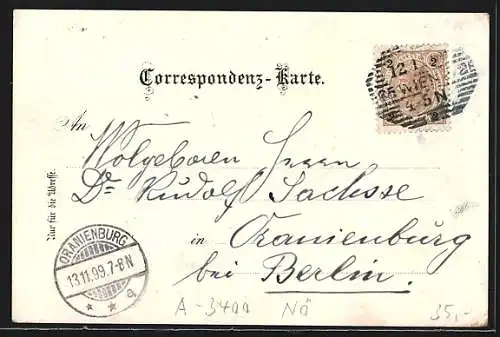 Correspondenz-Karte.
An
Wolgeboren Herrn
Dr Rudolf Sachsse
in Oranienburg
bei Berlin.
Nur für die Adresse.
12 1
25 WIEN
4-5N
ORANIENBURG
13.11.99.7-8N
* * a
A-3400 NÖ
35,-